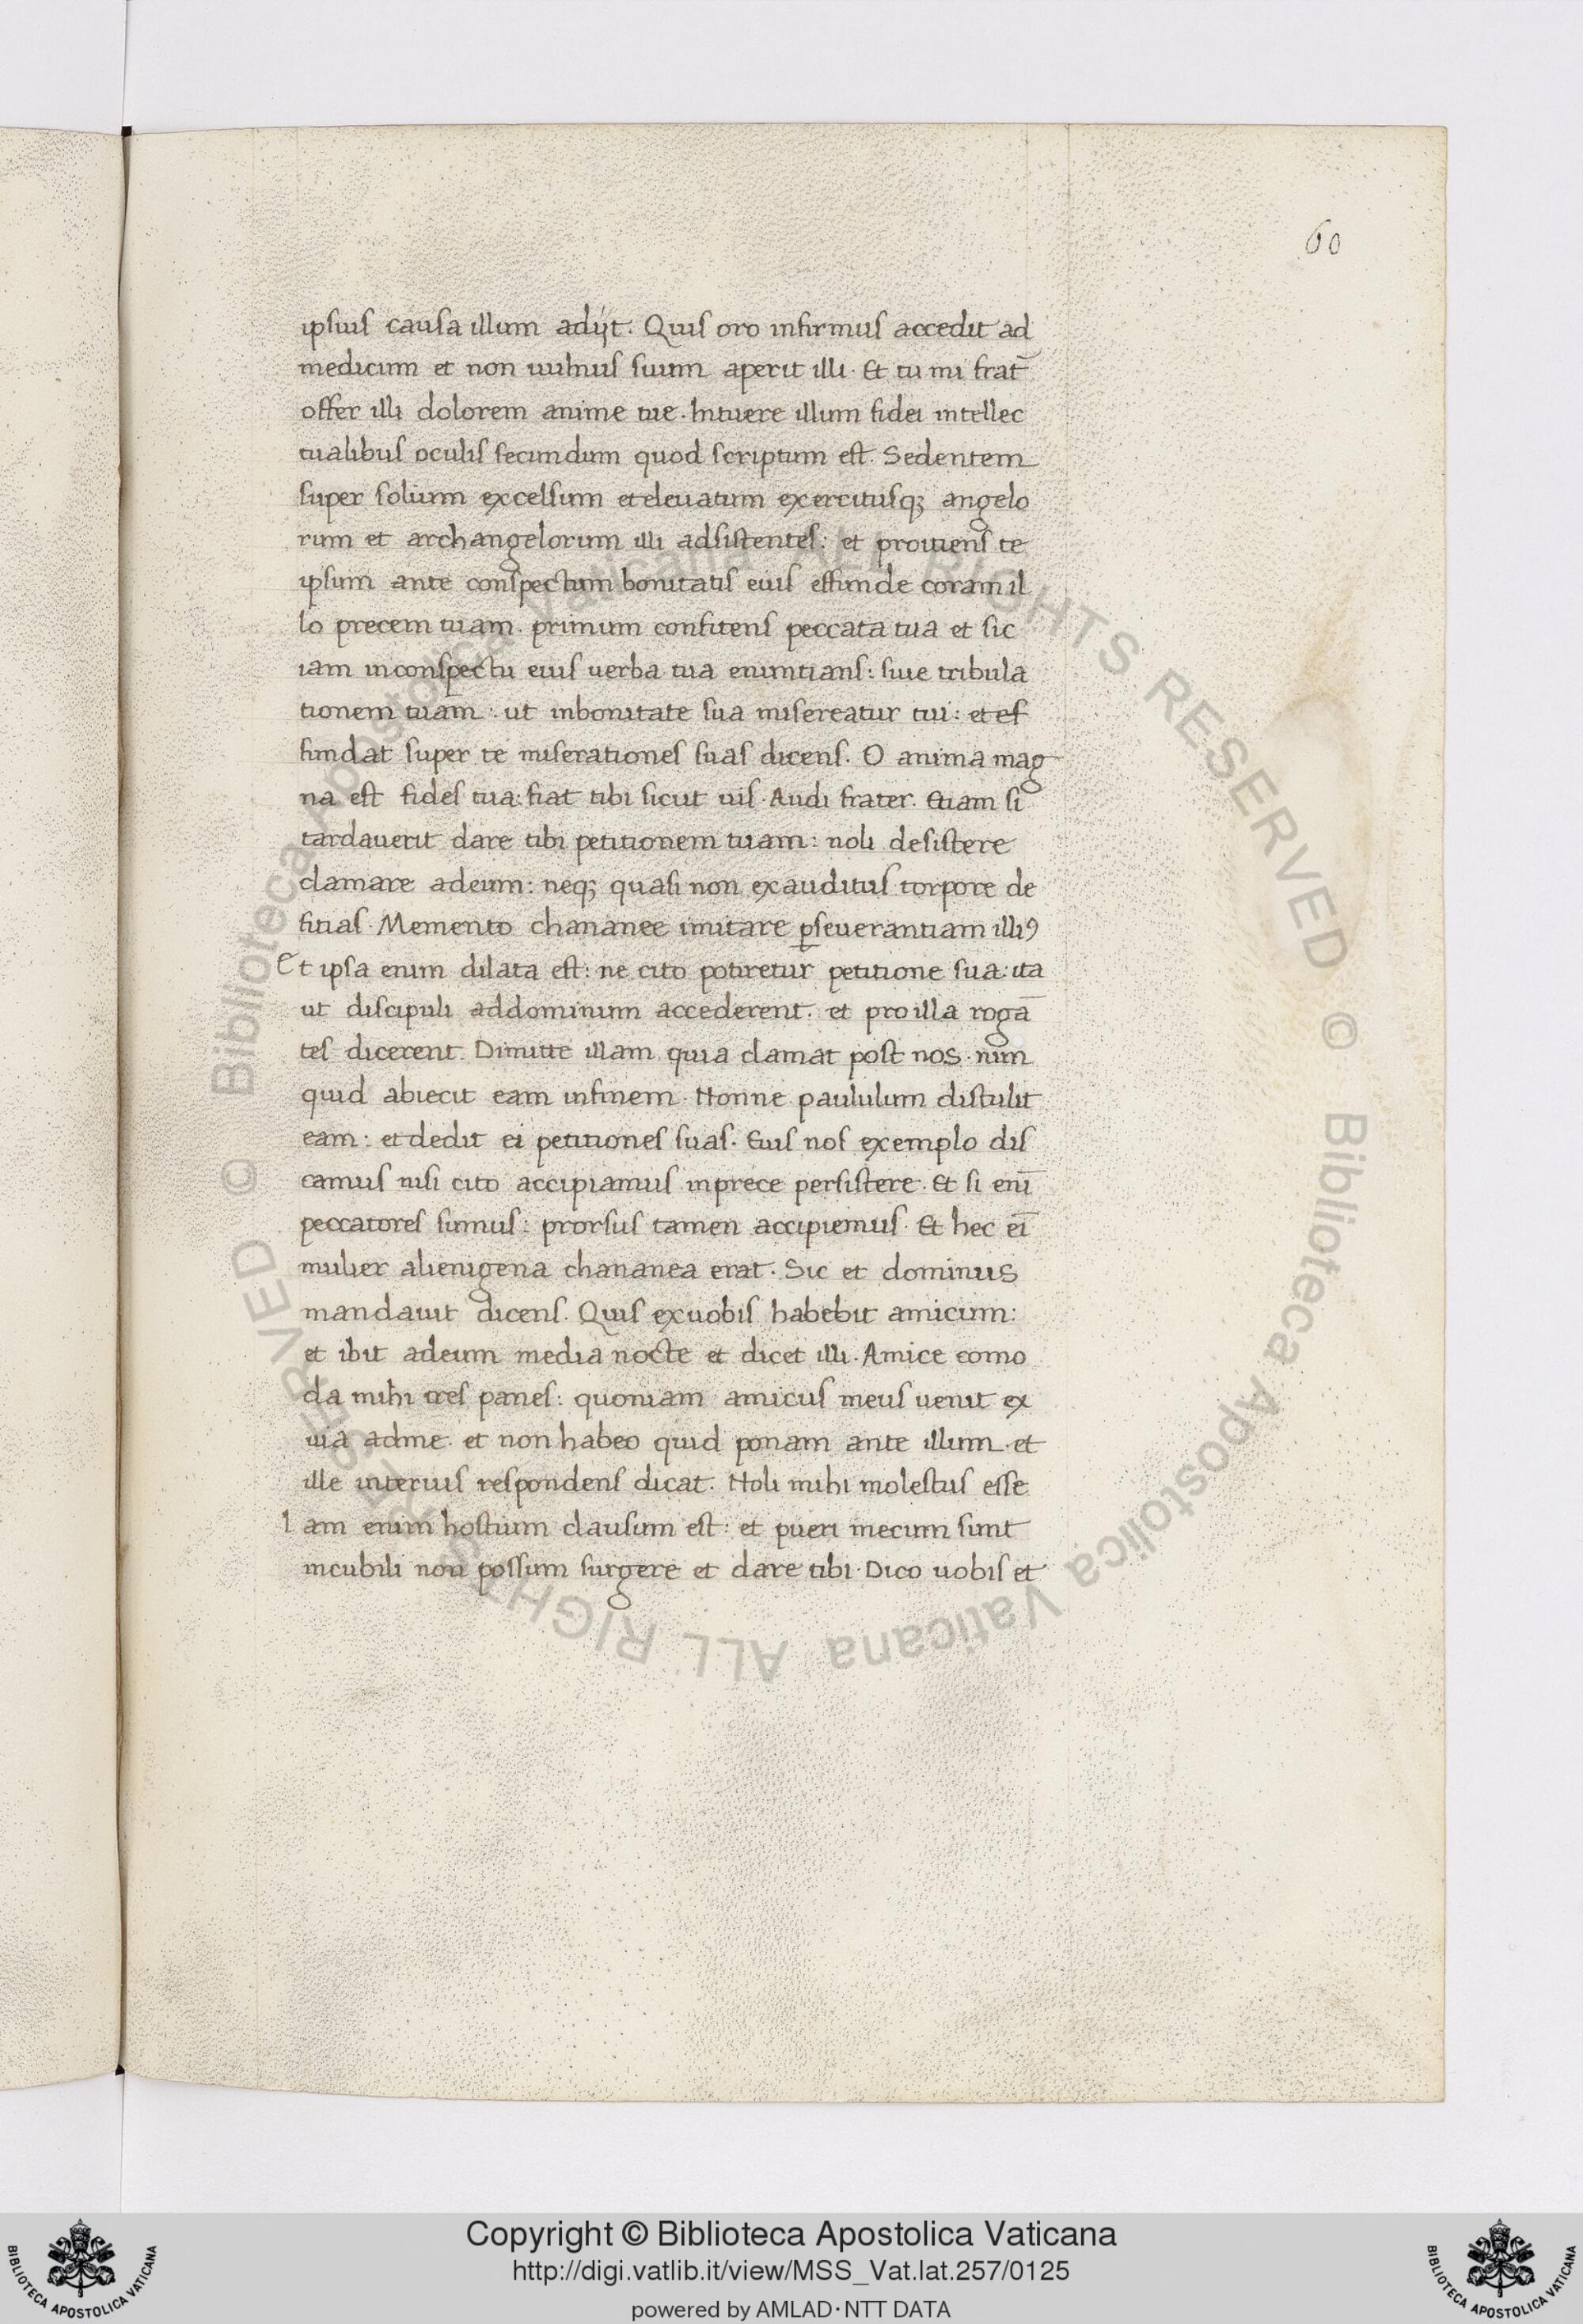 60
ipsius causa illum adijt. Quis oro infirmus accedit ad
medicum et non uulnus suum aperit illi. Et tu mi frat̄
offer illi dolorem anime tue. Intuere illum fidei intellec
tualibus oculis secundum quod scriptum est. Sedentem
super solium excelsum et eleuatum exercitusq; angelo
rum et archangelorum illi adsistentes: et prouiens te
ipsum ante conspectum bonitatis eius effunde coram il
lo precem tuam. primum confitens peccata tua et sic
iam inconspectu eius uerba tua enuntians: siue tribula
tionem tuam: ut inbonitate sua misereatur tui: et ef
fundat super te miserationes suas dicens. O anima mag
na est fides tua: fiat tibi sicut uis. Audi frater. Etiam si
tardauerit dare tibi petitionem tuam: noli desistere
clamare adeum: neq; quasi non exauditus torpore de
fitias. Memento chananee imitare ꝑseuerantiam illiꝰ
Et ipsa enim dilata est: ne cito potiretur petitione sua: ita
ut discipuli addominum accederent. et pro illa rogā
tes dicerent. Dimitte illam quia clamat post nos. num
quid abiecit eam infinem. Nonne paululum distulit
eam: et dedit ei petitiones suas. Eius nos exemplo dis
camus nisi cito accipiamus inprece persistere. Et si enī
peccatores sumus: prorsus tamen accipiemus. Et hec eī
mulier alienigena chananea erat. Sic et dominus
mandauit dicens. Quis exuobis habebit amicum:
et ibit adeum media nocte et dicet illi. Amice como
da mihi tres panes: quoniam amicus meus uenit ex
uia adme. et non habeo quid ponam ante illum. et
ille interius respondens dicat. Noli mihi molestus esse
Iam enim hostium clausum est: et pueri mecum sunt
incubili non possum surgere et dare tibi. Dico uobis et
Biblioteca Apostolica Vaticana ALL RIGHTS RESERVED ©
Biblioteca Apostolica Vaticana ALL RIGHTS RESERVED ©
Copyright © Biblioteca Apostolica Vaticana
http://digi.vatlib.it/view/MSS_Vat.lat.257/0125
powered by AMLAD·NTT DATA
BIBLIOTECA APOSTOLICA VATICANA
BIBLIOTECA APOSTOLICA VATICANA